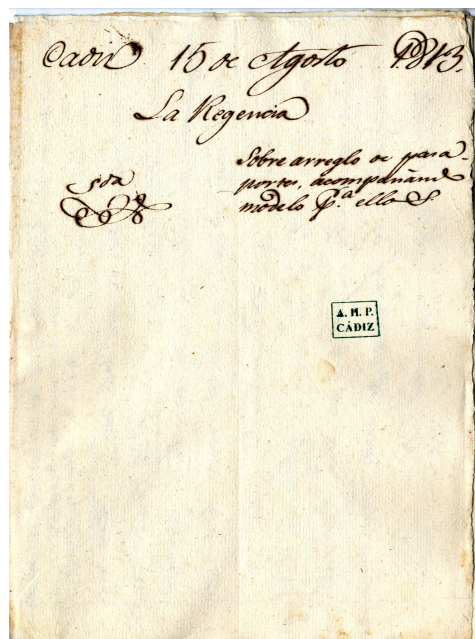 Cadiz 15 de Agosto 1813.
La Regencia
Sobre arreglo de pasa-
portes, acompañand
modelo p.ª ellos
A. H. P.
CÁDIZ